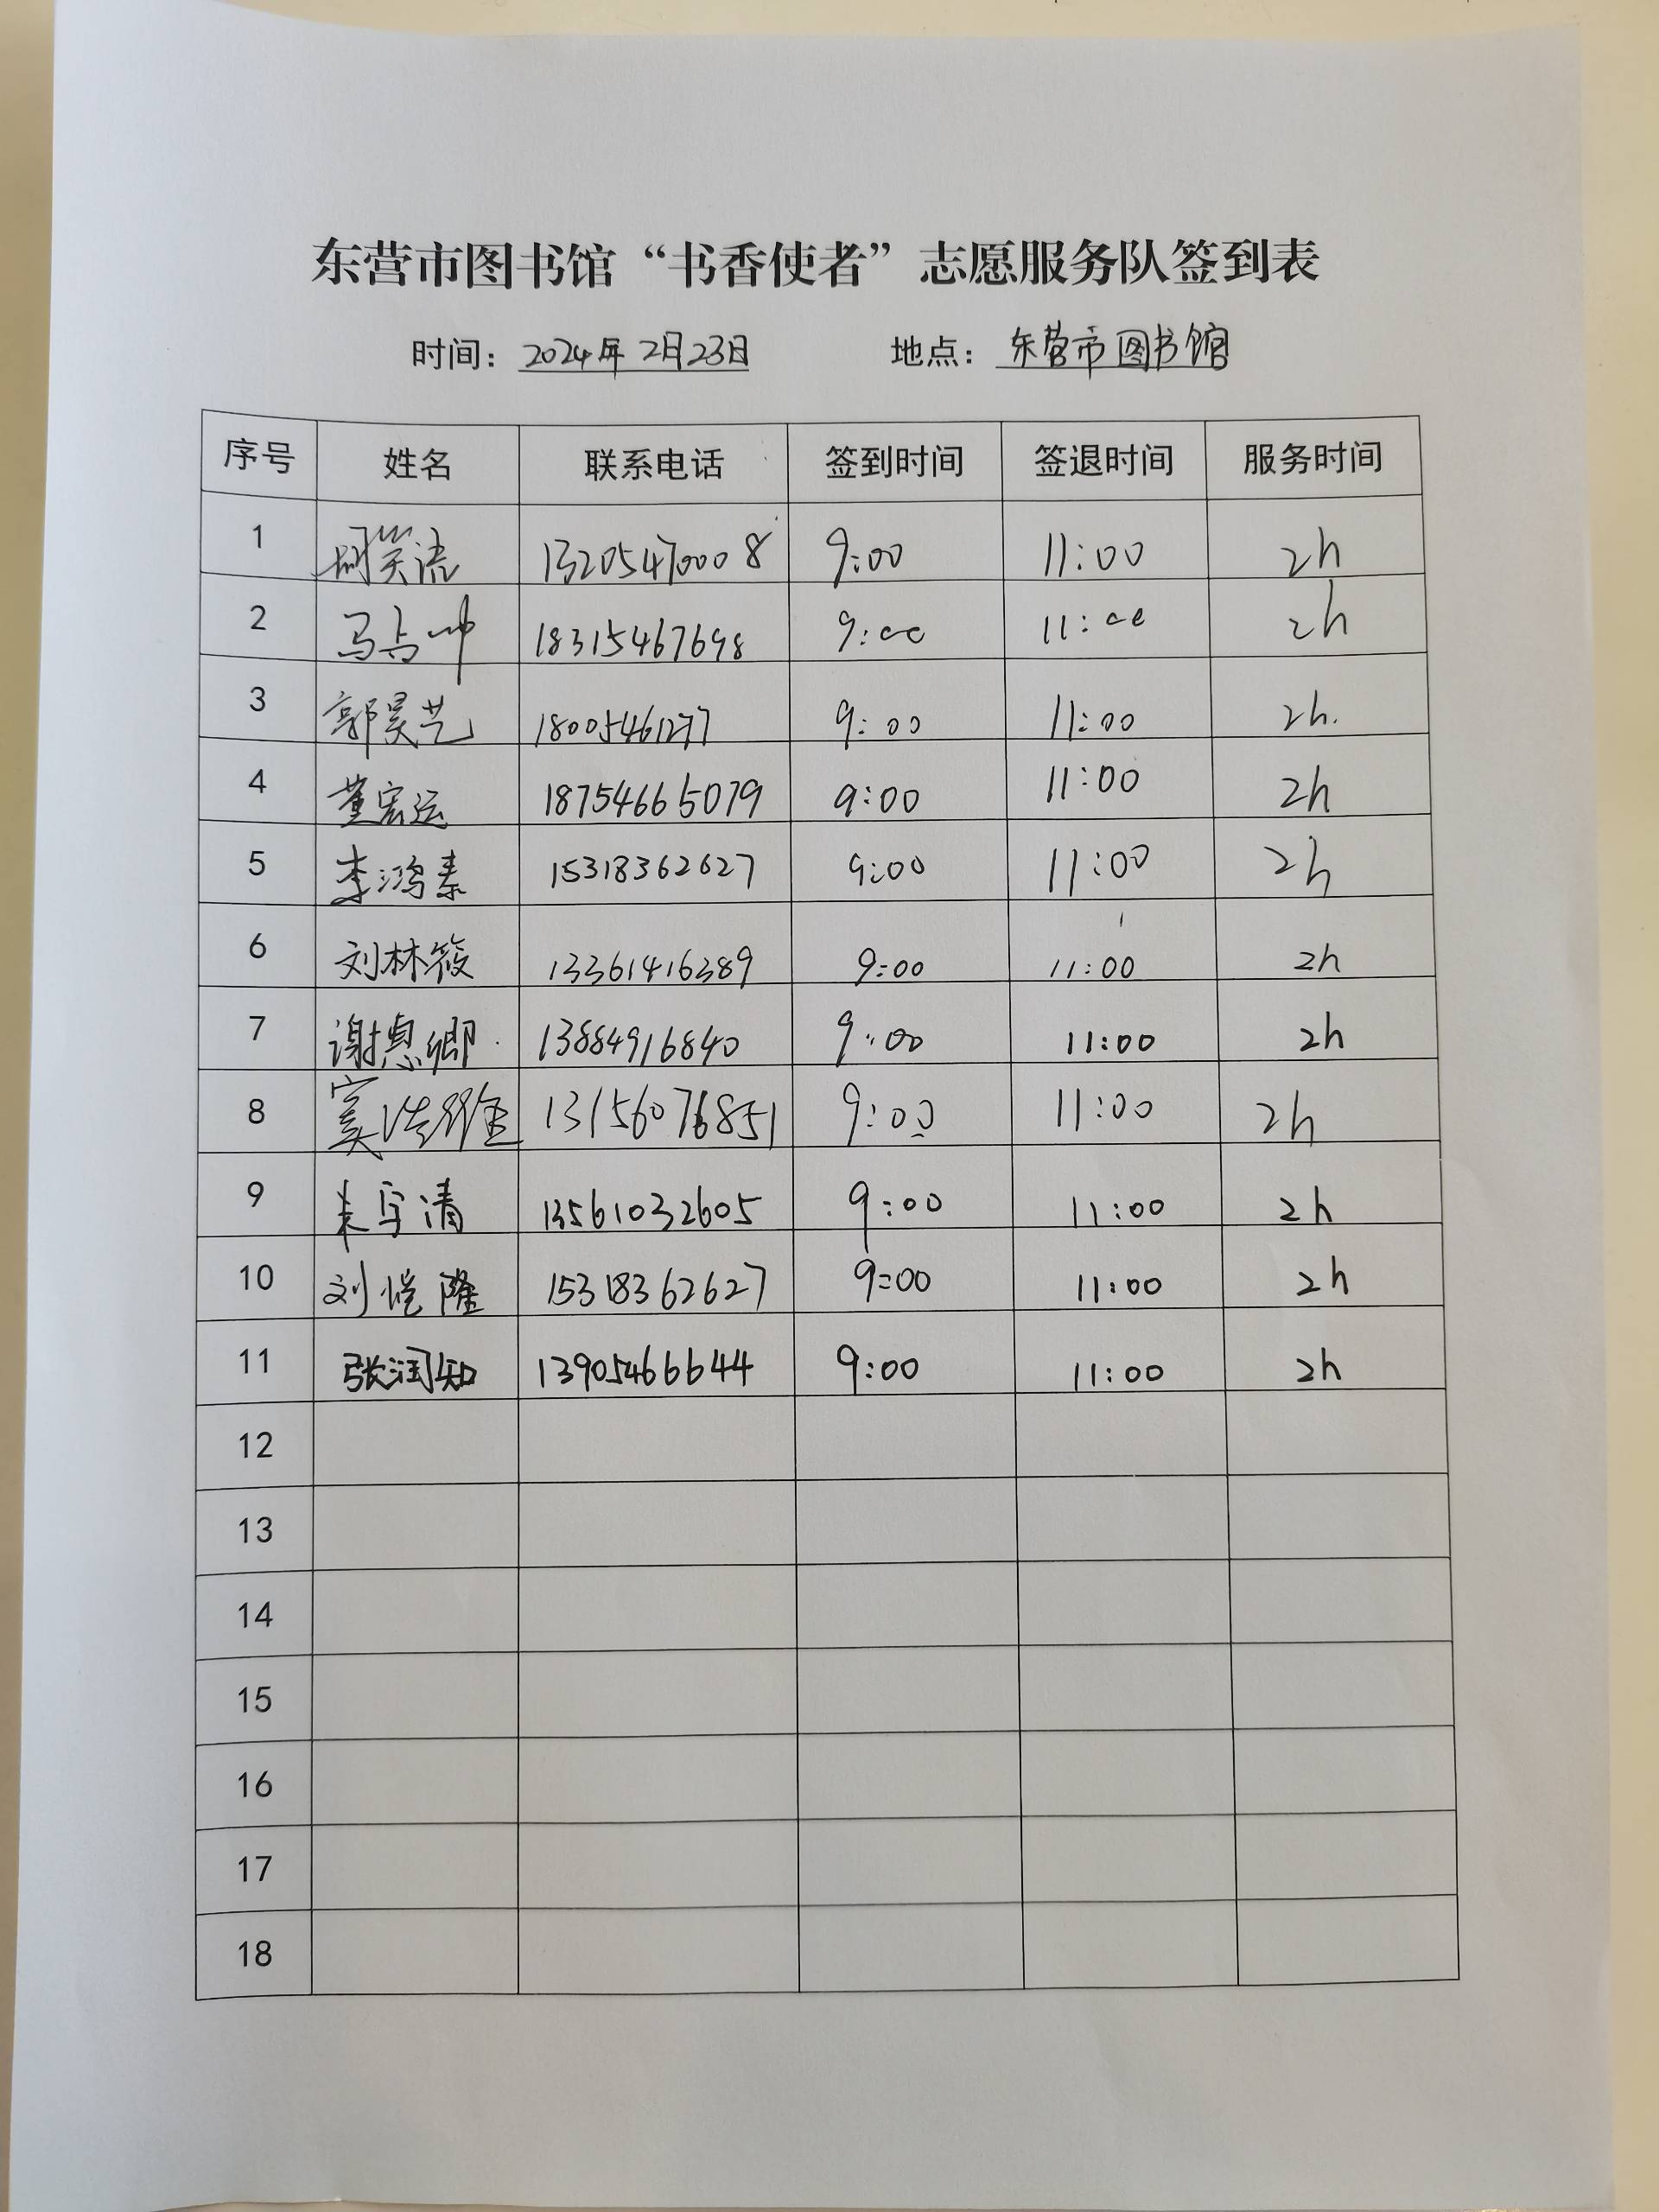 东营市图书馆“书香使者”志愿服务队签到表
时间：2024年2月23日 地点：东营市图书馆
序号 姓名 联系电话 签到时间 签退时间 服务时间
1 笑流 13205470008 9:00 11:00 2h
2 马占坤 18315467698 9:00 11:00 2h
3 郭昊艺 18005461277 9:00 11:00 2h.
4 董宏运 18754665079 9:00 11:00 2h
5 李鸿泰 15318362627 9:00 11:00 2h
6 刘林筱 13361416389 9:00 11:00 2h
7 谢惠卿 13884916840 9:00 11:00 2h
8 窦 13156076851 9:00 11:00 2h
9 朱宇清 13561032605 9:00 11:00 2h
10 刘恺隆 15318362627 9:00 11:00 2h
11 张润知 13905466644 9:00 11:00 2h
12
13
14
15
16
17
18